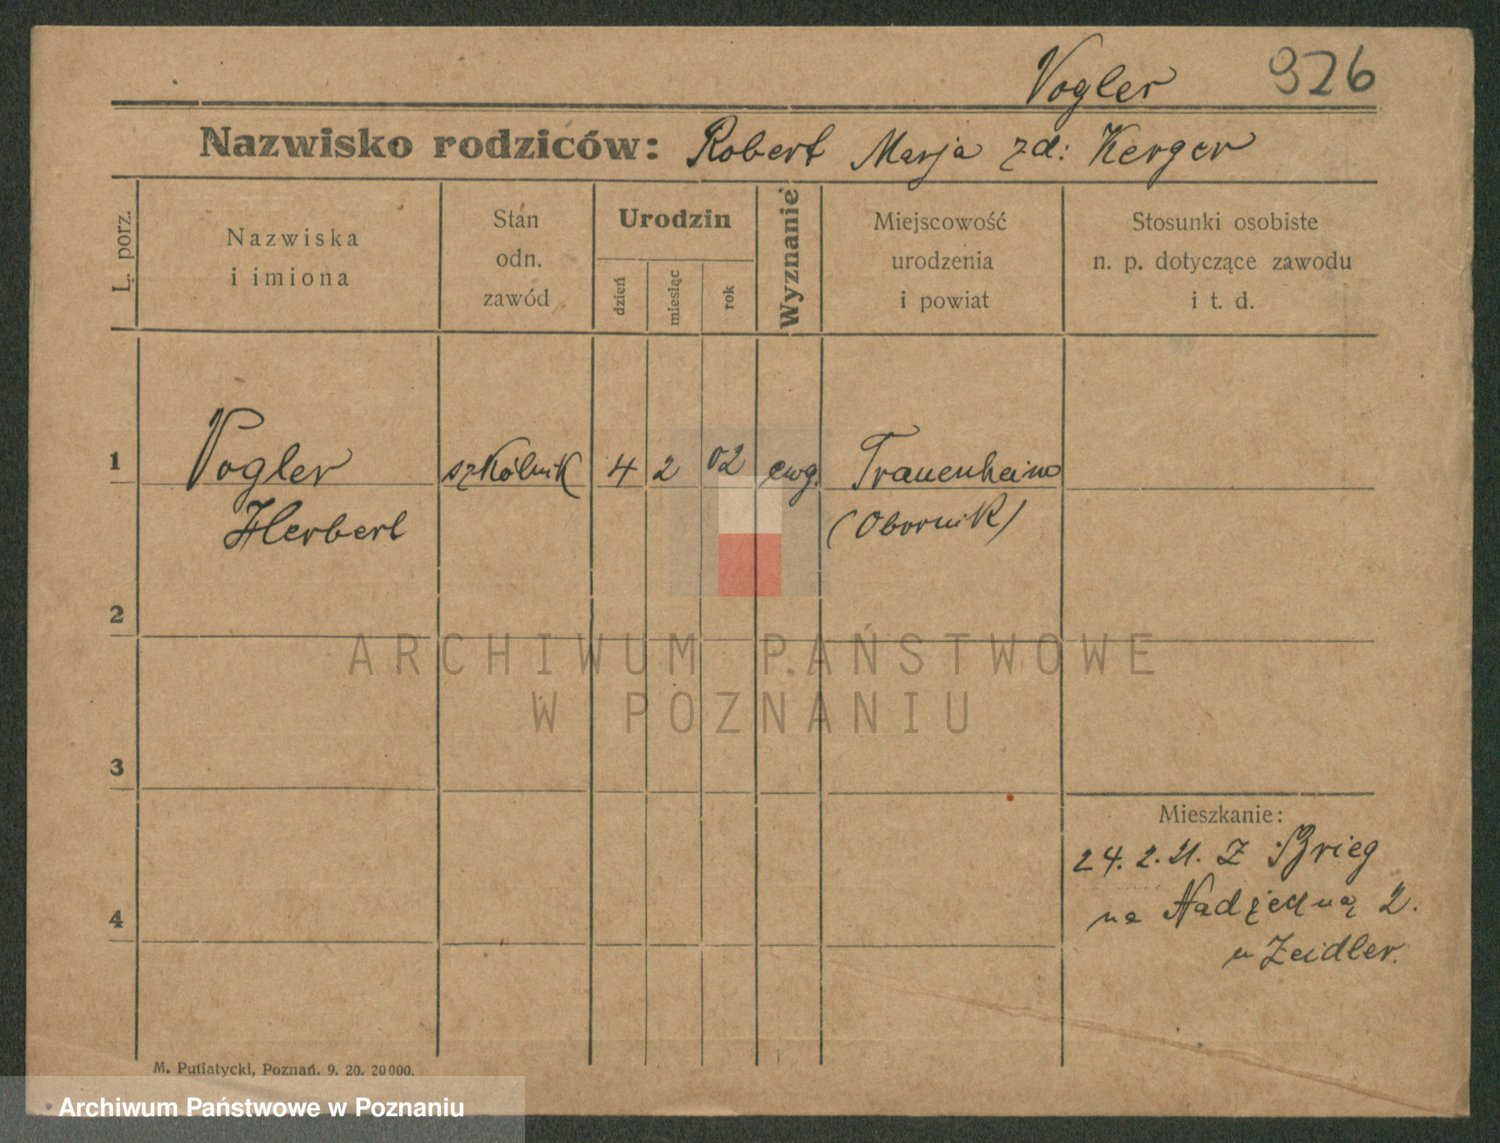 Vogler 926
Nazwisko rodziców: Robert Marja zd: Kerger
L. porz.
Nazwiska
i imiona
Stan
odn.
zawód
Urodzin
dzień
miesiąc
rok
Wyznanie
Miejscowość
urodzenia
i powiat
Stosunki osobiste
n. p. dotyczące zawodu
i t. d.
1 Vogler szkólnik 4 2 02 ewg. Trauenheim
Herbert (Obornik)
2
ARCHIWUM PAŃSTWOWE
W POZNANIU
3
Mieszkanie:
24. 2. 21. Z Brieg
4
na Nadzieczną 2.
u Zeidler.
M. Putiatycki, Poznań. 9. 20. 20000.
Archiwum Państwowe w Poznaniu